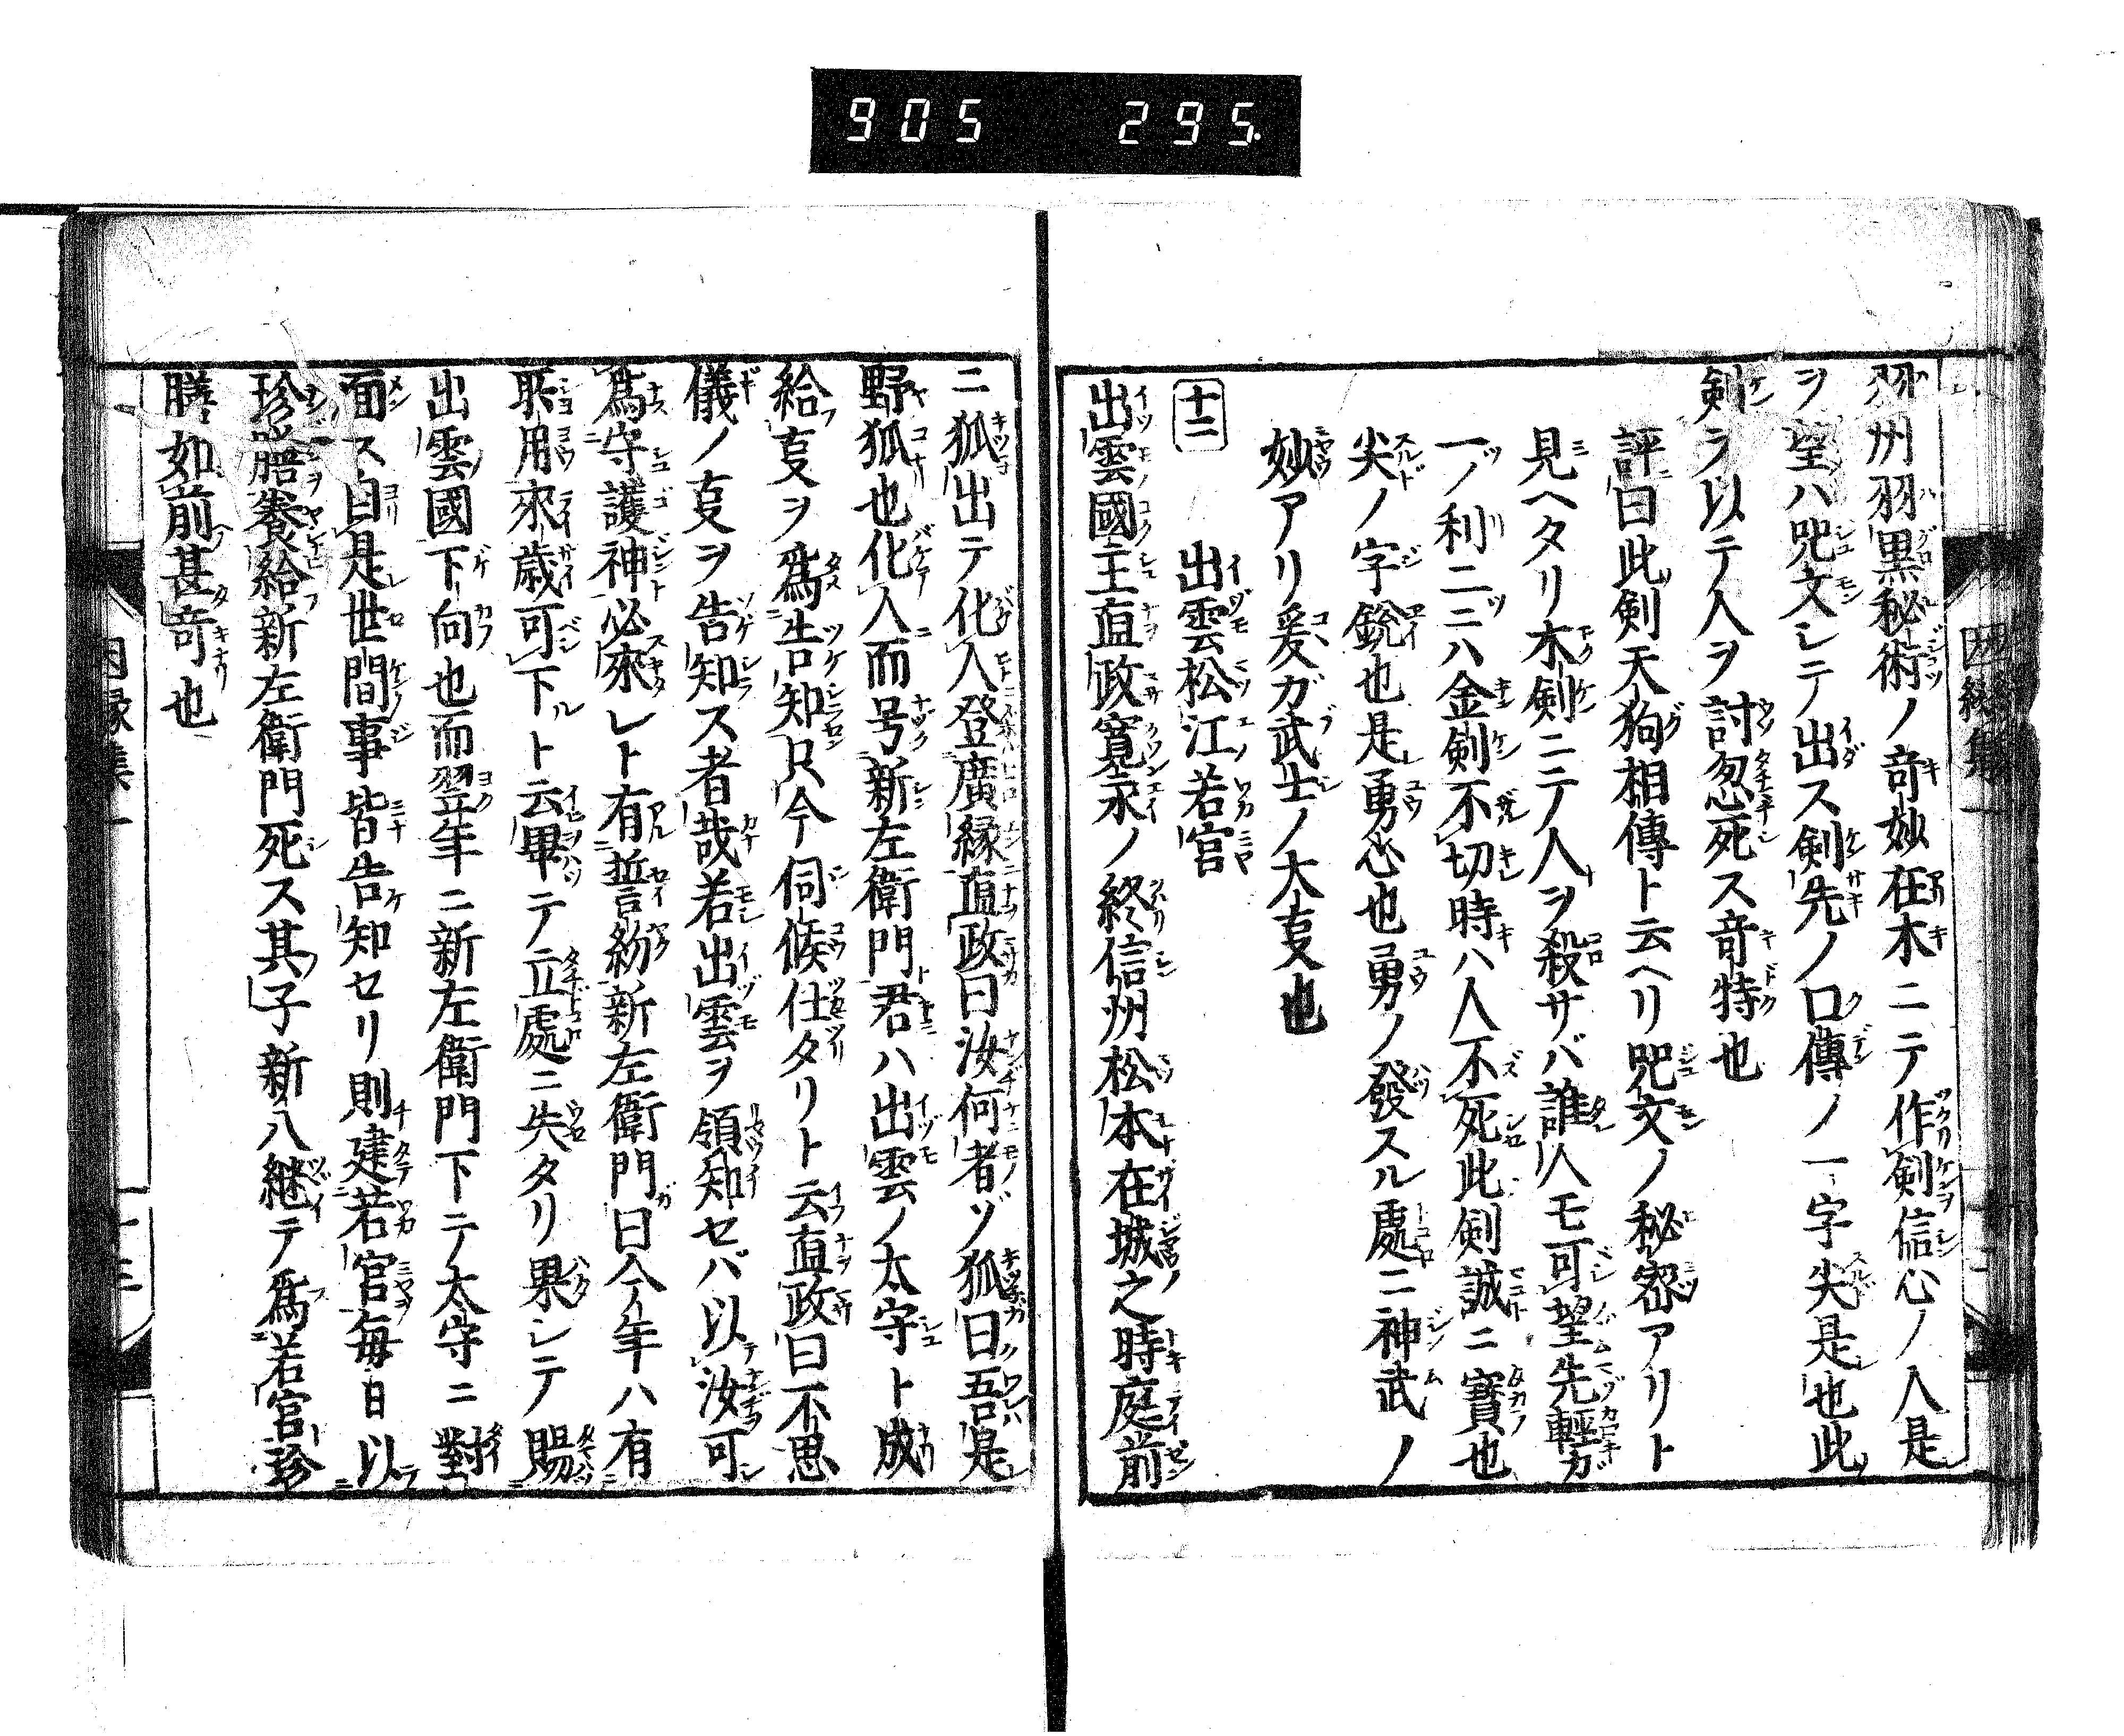 905 295.
羽州羽黒秘術ノ竒妙在木ニテ作剣信心ノ人是
ヲ望ハ咒文シテ出ス剣先ノ口傳ノ一字尖是也此
剣ヲ以テ人ヲ討忽死ス竒特也
評曰此剣天狗相傳ト云ヘリ咒文ノ秘密アリト
見ヘタリ木剣ニテ人ヲ殺サバ誰人モ可望先輕ガ
一ノ利二ニハ金剣不切時ハ人不死此剣誠ニ寳也
尖ノ字銳也是勇心也勇ノ發スル處ニ神武ノ
妙アリ爰ガ武士ノ大叓也
十二 出雲松江若宮
出雲國主直政寛永ノ終信州松本在城之時庭前
ニ狐出テ化人登廣縁直政曰汝何者ゾ狐曰吾是
野狐也化人而号新左衛門君ハ出雲ノ太守ト成
給叓ヲ爲告知只今伺候仕タリト云直政曰不思
儀ノ叓ヲ告知ス者哉若出雲ヲ領知セバ以汝可
爲守護神必來レト有誓約新左衛門曰今年ハ有
所用來歳可下ルト云畢テ立處ニ失タリ果シテ賜
出雲國下向也而翌年ニ新左衛門下テ太守ニ對
面ス自是世間事皆告知セリ則建若宮毎日以
珍膳養給新左衛門死ス其子新八継テ爲若宮珍
膳如前甚竒也
因縁集一
十三